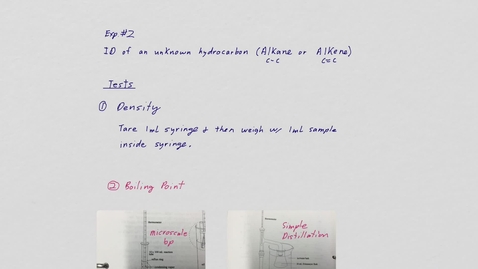 Exp #2
ID of an unknown hydrocarbon (Alkane or Alkene)
C-C C=C
Tests
① Density
Tare 1mL syringe & then weigh w/ 1mL sample
inside syringe.
② Boiling Point
microscale
bp
Simple
Distillation